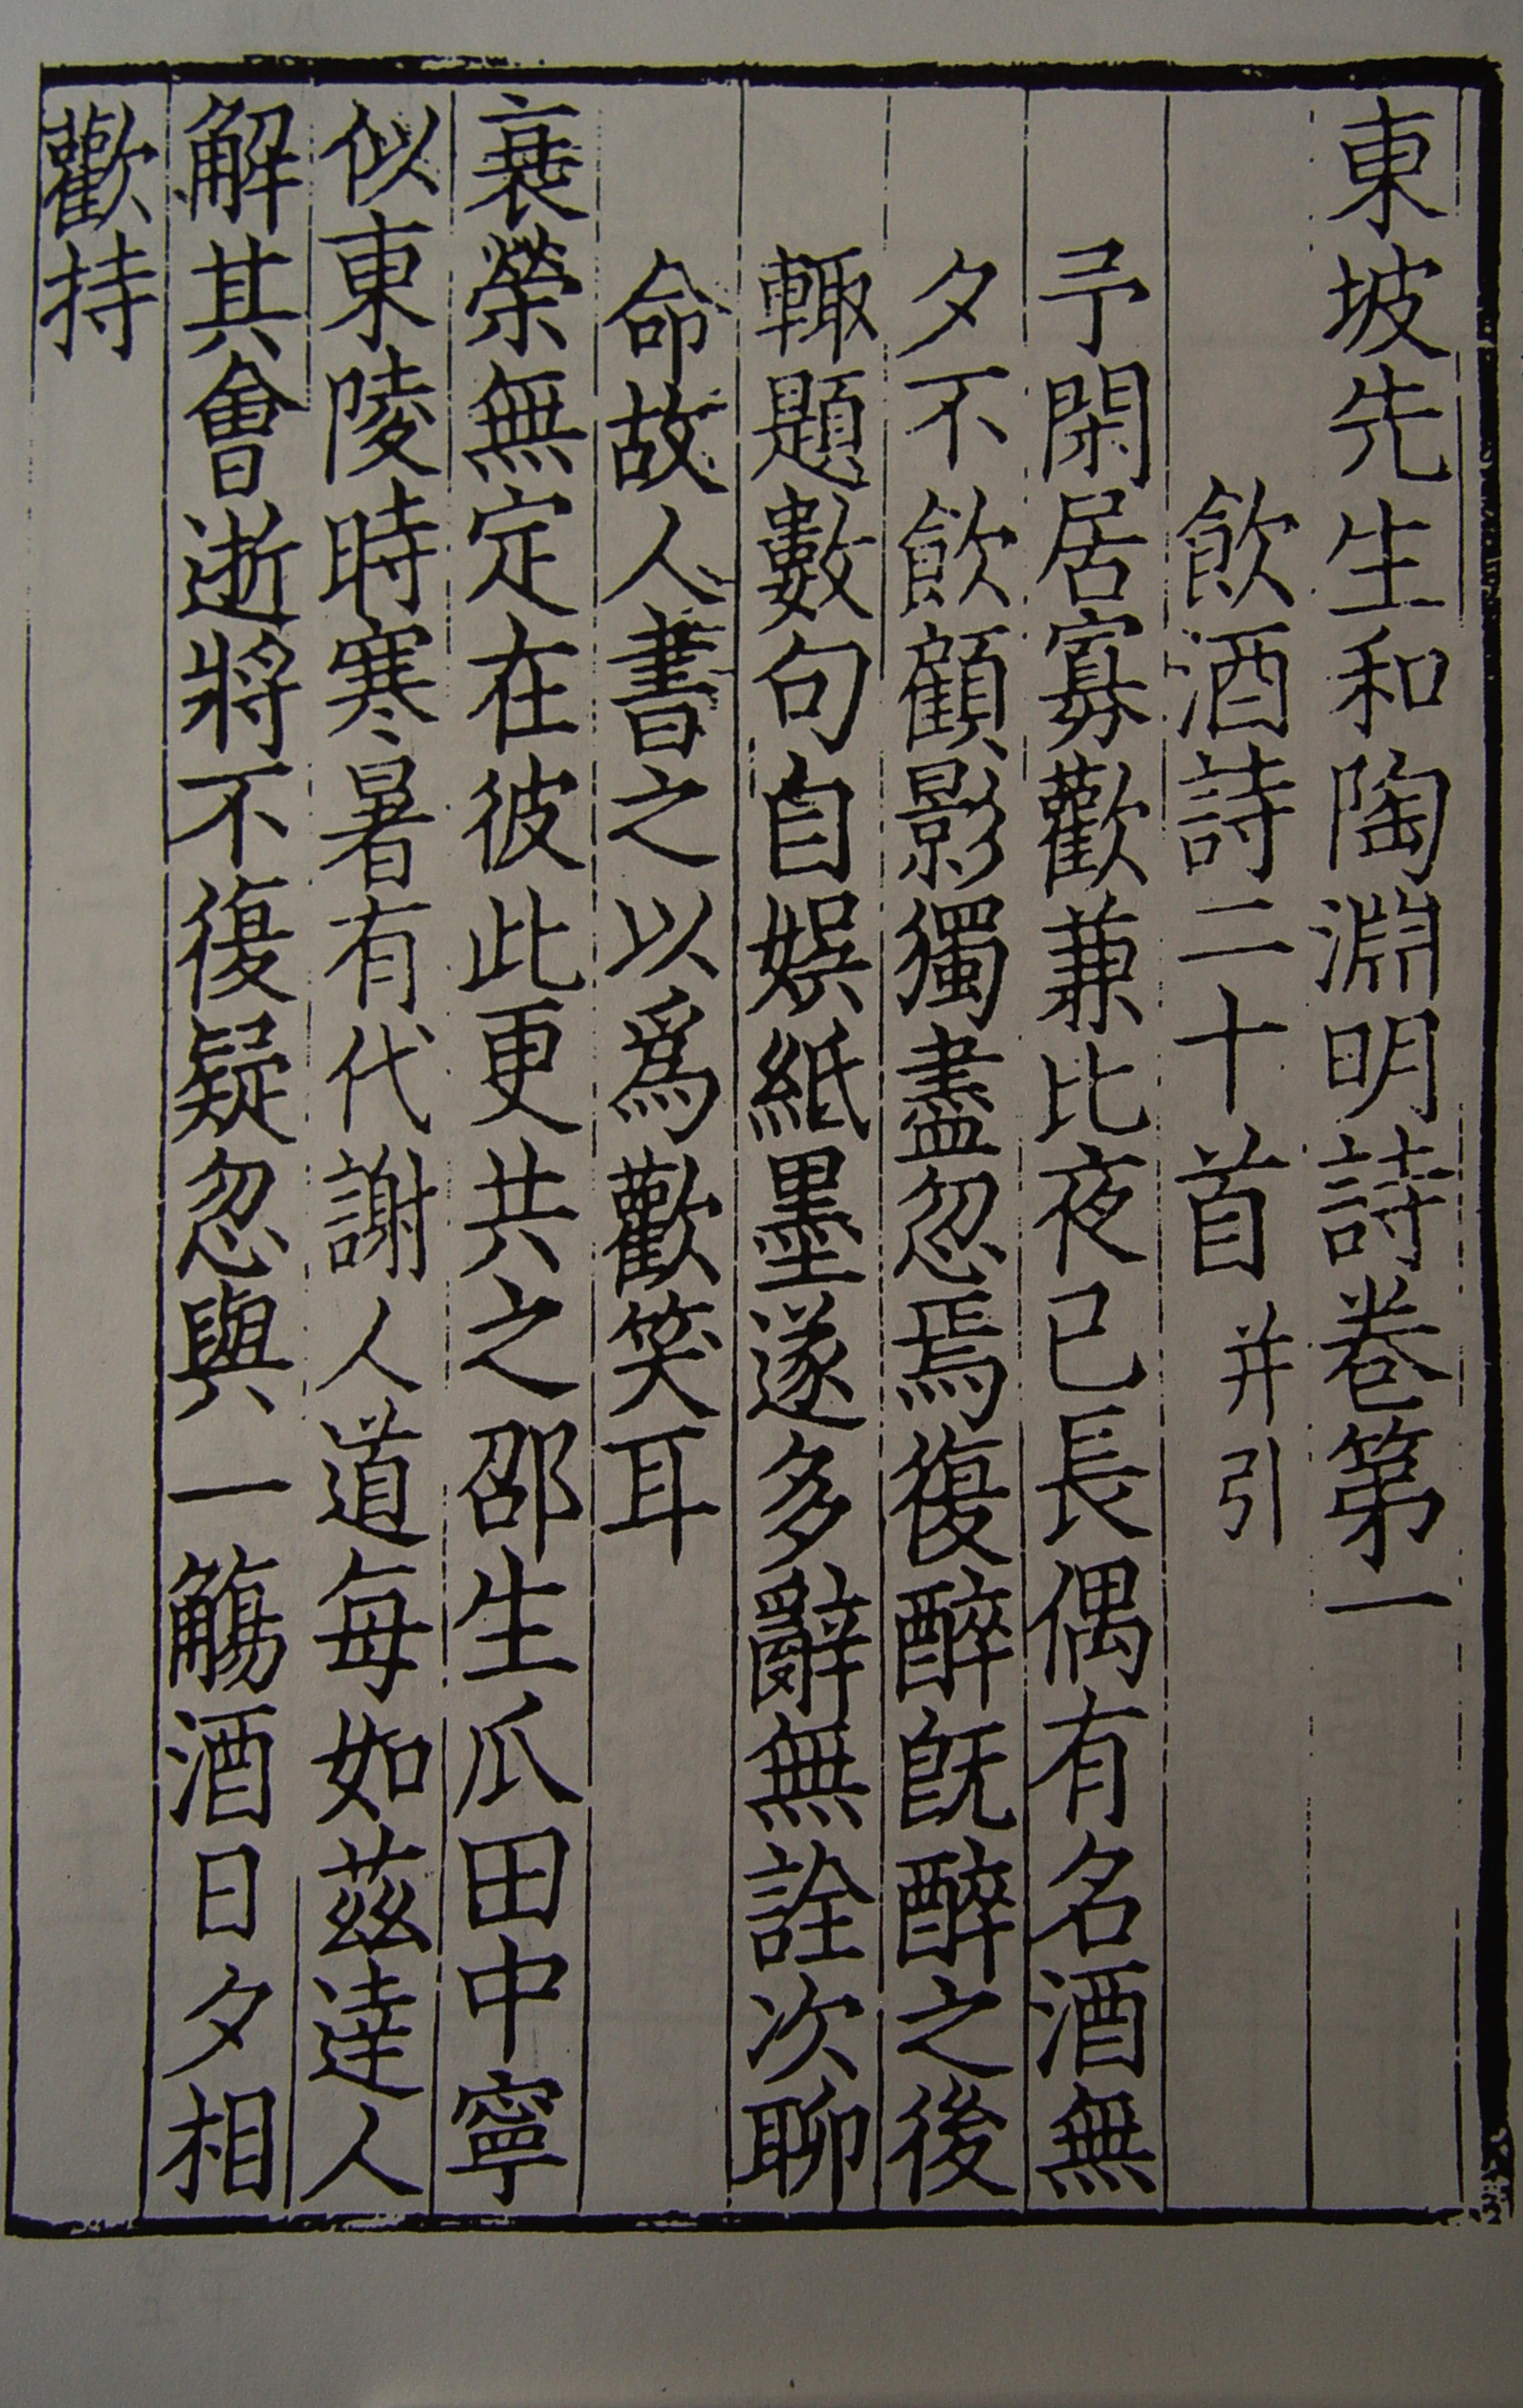 東坡先生和陶淵明詩卷第一
飲酒詩二十首 并引
予閑居寡歡兼比夜已長偶有名酒無
夕不飲顧影獨盡忽焉復醉旣醉之後
輙題數句自娯紙墨遂多辭無詮次聊
命故人書之以爲歡笑耳
衰榮無定在彼此更共之邵生瓜田中寧
似東陵時寒暑有代謝人道每如茲達人
解其會逝將不復疑忽與一觴酒日夕相
歡持